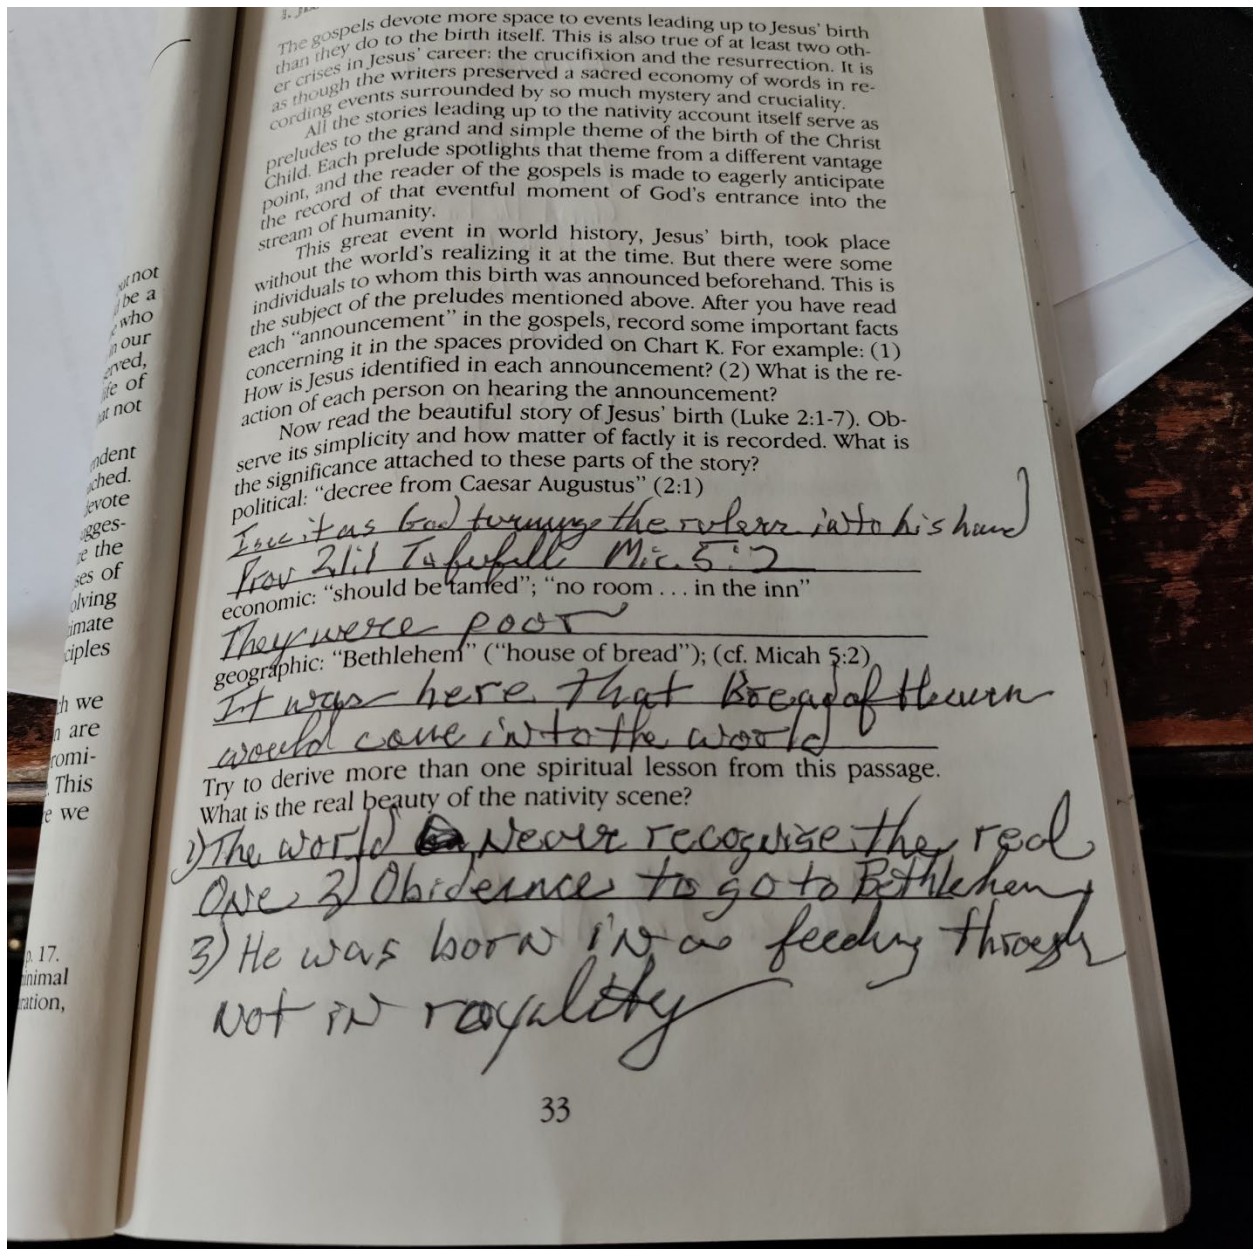 The gospels devote more space to events leading up to Jesus' birth
than they do to the birth itself. This is also true of at least two oth-
er crises in Jesus' career: the crucifixion and the resurrection. It is
as though the writers preserved a sacred economy of words in re-
cording events surrounded by so much mystery and cruciality.
All the stories leading up to the nativity account itself serve as
preludes to the grand and simple theme of the birth of the Christ
Child. Each prelude spotlights that theme from a different vantage
point, and the reader of the gospels is made to eagerly anticipate
the record of that eventful moment of God's entrance into the
stream of humanity.
This great event in world history, Jesus' birth, took place
without the world's realizing it at the time. But there were some
individuals to whom this birth was announced beforehand. This is
the subject of the preludes mentioned above. After you have read
each "announcement" in the gospels, record some important facts
concerning it in the spaces provided on Chart K. For example: (1)
How is Jesus identified in each announcement? (2) What is the re-
action of each person on hearing the announcement?
Now read the beautiful story of Jesus' birth (Luke 2:1-7). Ob-
serve its simplicity and how matter of factly it is recorded. What is
the significance attached to these parts of the story?
political: "decree from Caesar Augustus" (2:1)
I see it as God turning the rulers into his hand
Prov 21:1 To fufull Mic. 5:2
economic: "should be taxed"; "no room . . . in the inn"
They were poor
geographic: "Bethlehem" ("house of bread"); (cf. Micah 5:2)
It was here that Bread of Heaven
would come into the world
Try to derive more than one spiritual lesson from this passage.
What is the real beauty of the nativity scene?
1) The world Never recognise the real
One 2) Obidernce to go to Bethlehem
3) He was born in a feeding through
not in royality
33
out not
d be a
who
in our
erved,
life of
at not
ndent
ched.
devote
ugges-
re the
ses of
olving
imate
ciples
ch we
n are
romi-
This
e we
p. 17.
inimal
ration,